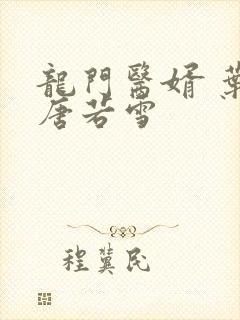 龍門醫婿 葉
唐若雪
程冀民